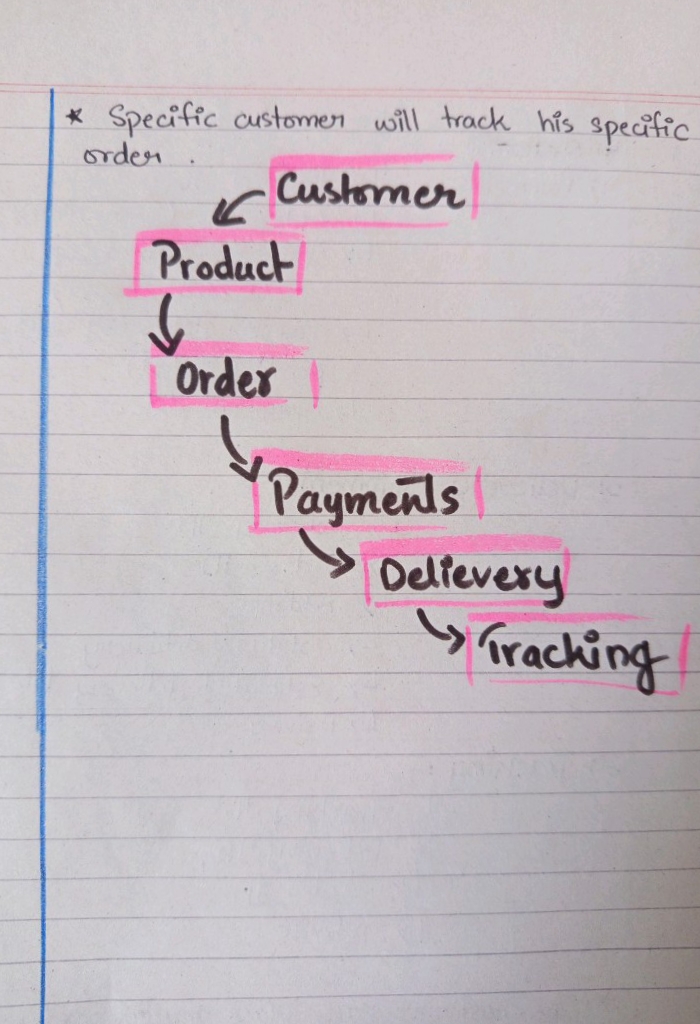 * Specific customer will track his specific
order .
Customer
Product
Order
Payments
Delievery
Tracking